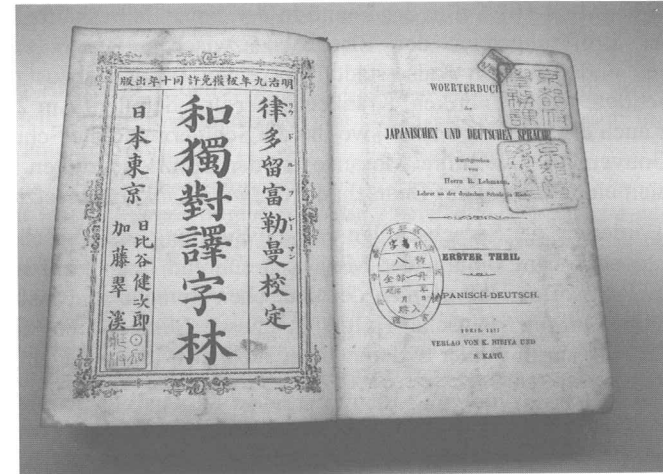 明治九年板權免許同十年出版
リウドルフレーマン
律多留富勒曼校定
和獨對譯字林
日本東京
日比谷健次郎
加藤翠溪
WOERTERBUCH
der
JAPANISCHEN UND DEUTSCHEN SPRACHE
durchgesehen
von
Herrn R. Lehmann,
Lehrer an der deutschen Schule zu
ERSTER THEIL
JAPANISCH-DEUTSCH.
TOKIO 1877
VERLAG VON K. HIBIYA UND
S. KATŌ.